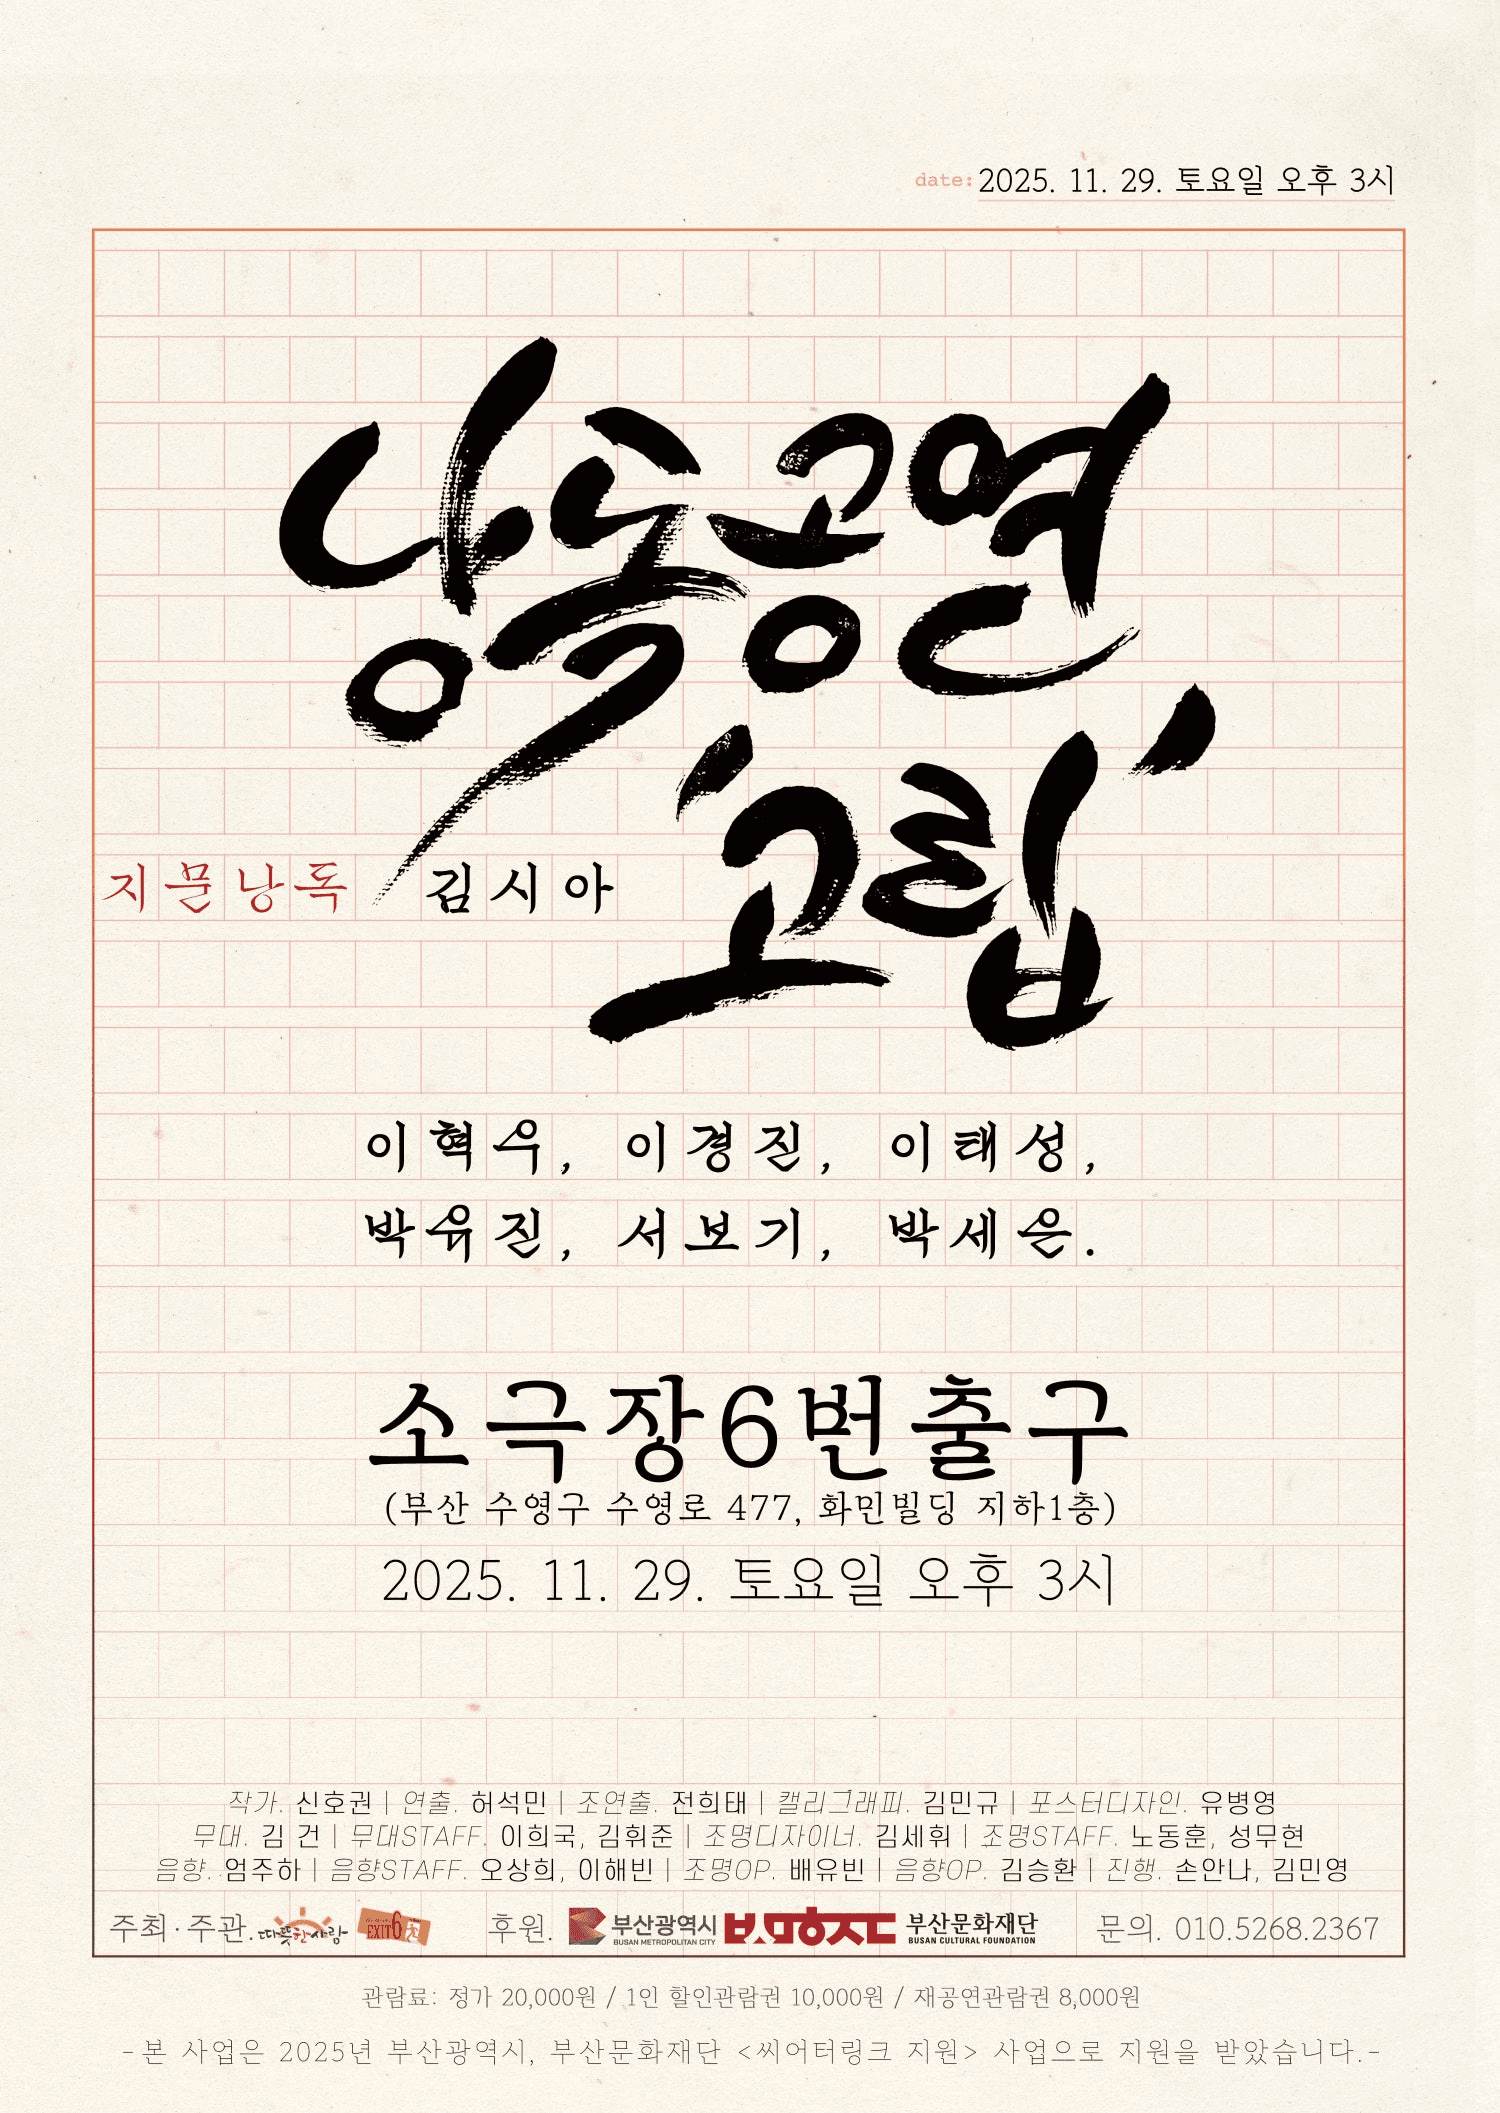 date: 2025. 11. 29. 토요일 오후 3시
낭독공연
'고립'
지문낭독 김시아
이혁우, 이경진, 이태성,
박유진, 서보기, 박세은.
소극장6번출구
(부산 수영구 수영로 477, 화민빌딩 지하1층)
2025. 11. 29. 토요일 오후 3시
작가. 신호권 | 연출. 허석민 | 조연출. 전희태 | 캘리그래피. 김민규 | 포스터디자인. 유병영
무대. 김 건 | 무대STAFF. 이희국, 김휘준 | 조명디자이너. 김세휘 | 조명STAFF. 노동훈, 성무현
음향. 엄주하 | 음향STAFF. 오상희, 이해빈 | 조명OP. 배유빈 | 음향OP. 김승환 | 진행. 손안나, 김민영
주최·주관. 따뜻한사람 EXIT6 후원. 부산광역시 BUSAN METROPOLITAN CITY 부산문화재단 BUSAN CULTURAL FOUNDATION 문의. 010.5268.2367
관람료: 정가 20,000원 / 1인 할인관람권 10,000원 / 재공연관람권 8,000원
-본 사업은 2025년 부산광역시, 부산문화재단 <씨어터링크 지원> 사업으로 지원을 받았습니다.-